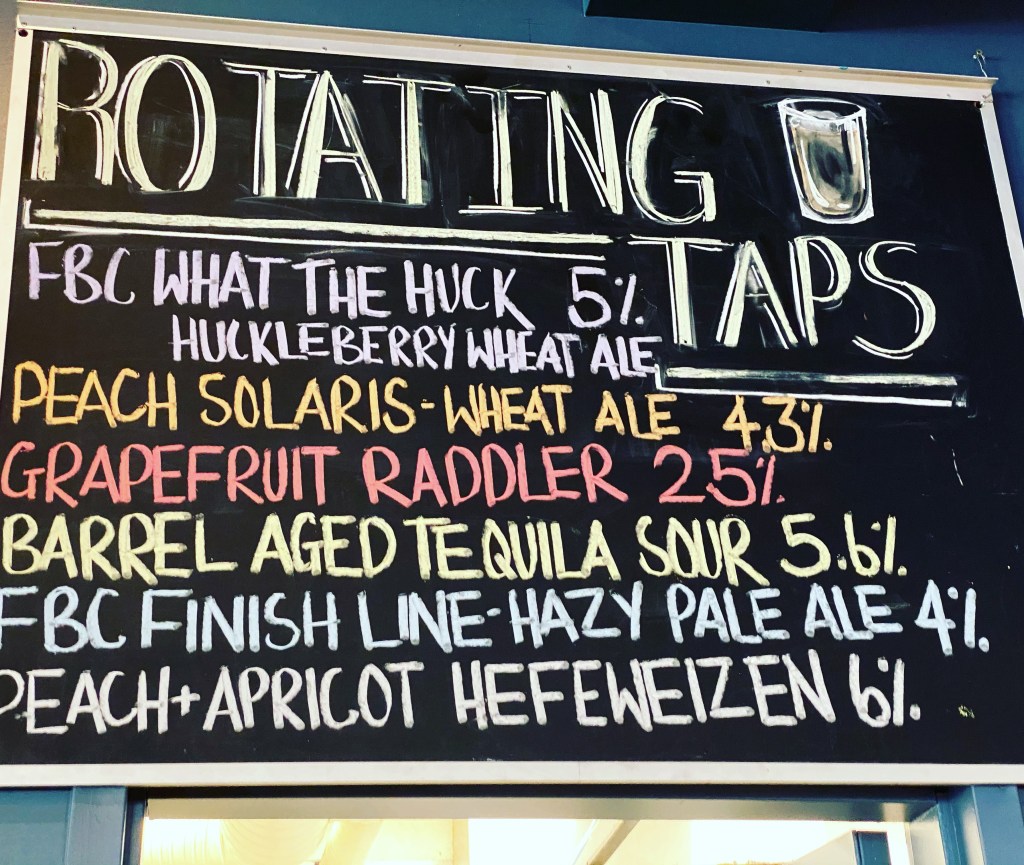 ROTATING
TAPS
FBC WHAT THE HUCK 5%
HUCKLEBERRY WHEAT ALE
PEACH SOLARIS-WHEAT ALE 4.3%
GRAPEFRUIT RADDLER 2.5%
BARREL AGED TEQUILA SOUR 5.6%
FBC FINISH LINE-HAZY PALE ALE 4%
PEACH+APRICOT HEFEWEIZEN 6%